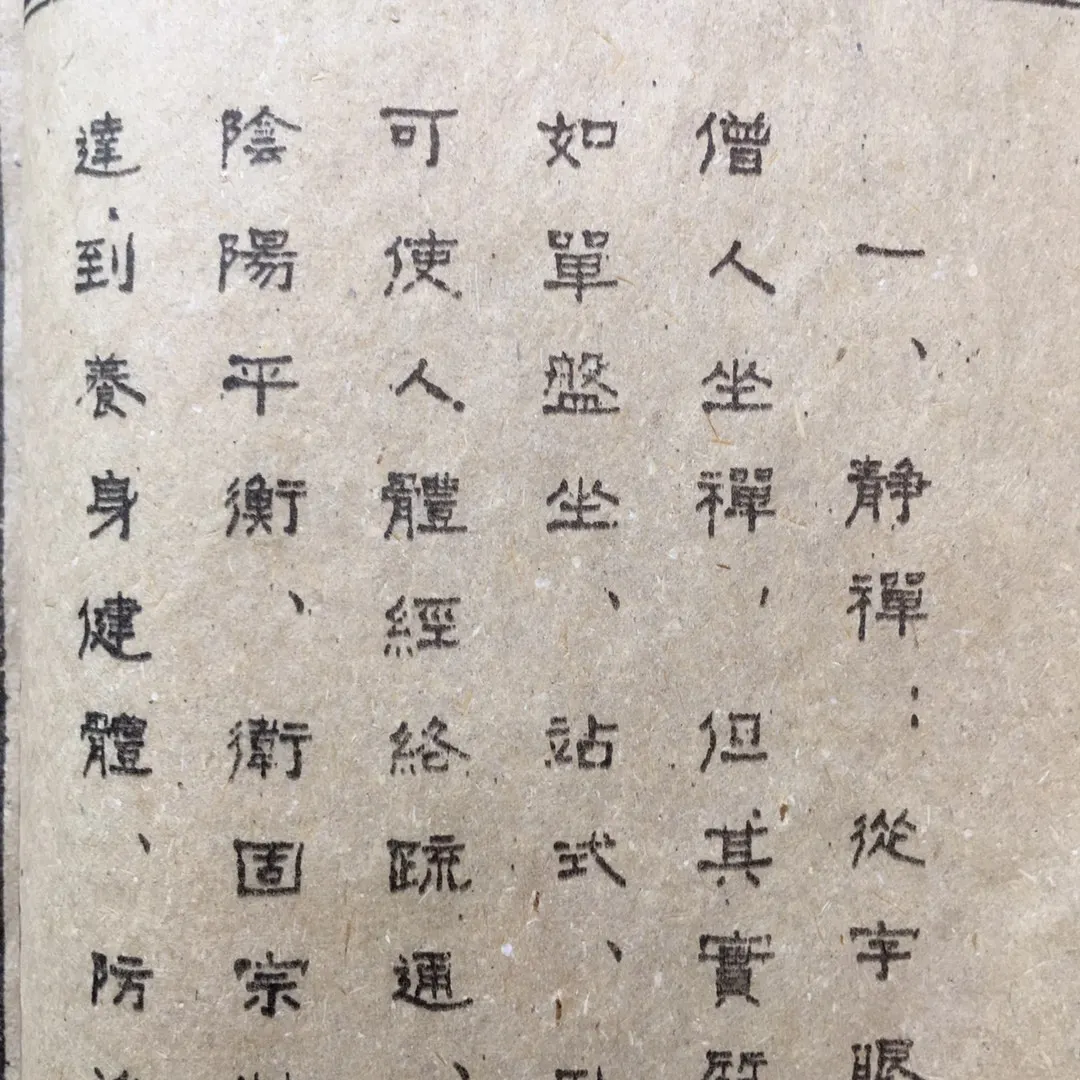 一、靜禪：從字眼
僧人坐禪，但其實質
如單盤坐、站式、
可使人體經絡疏通、
陰陽平衡、衛固宗
達到養身健體、防